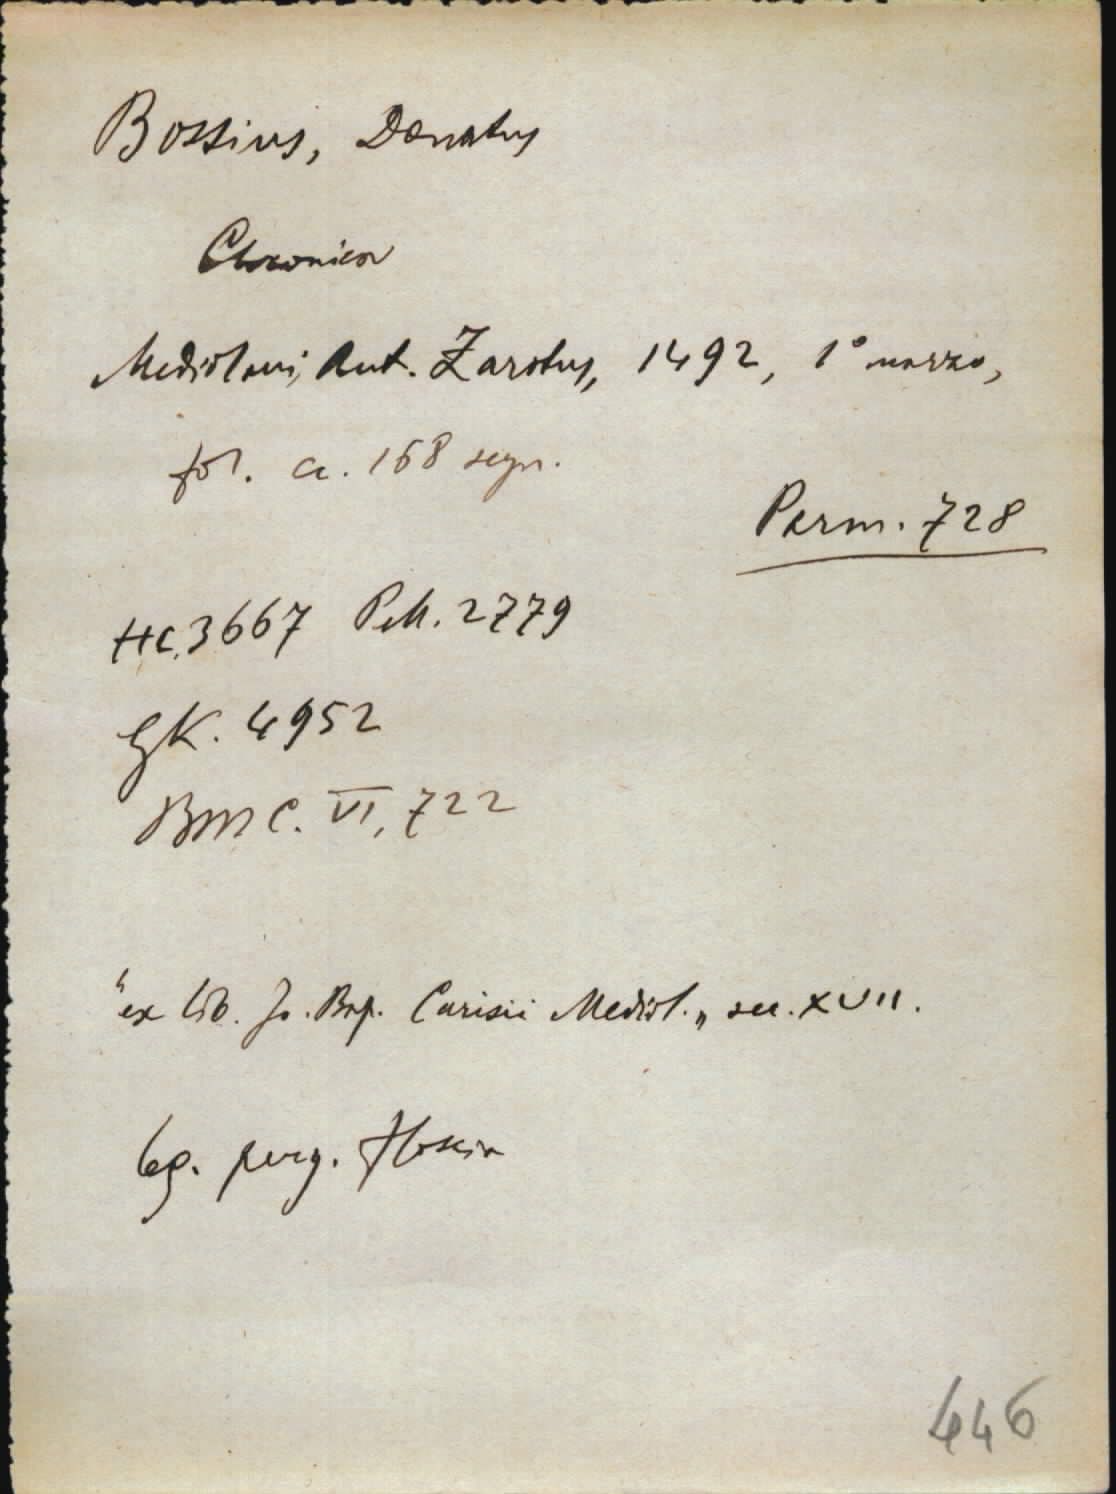 Bossius, Donatus
Chronica
Mediolani, Ant. Zarotus, 1492, 1° marzo,
fol. cc. 168 segn.
Parm. 728
HC. 3667 Pell. 2779
GK. 4952
BMC. VI, 722
"ex lib. Jo. Bap. Carisii Mediol.„ sec. XVII.
leg. perg. floscia
446